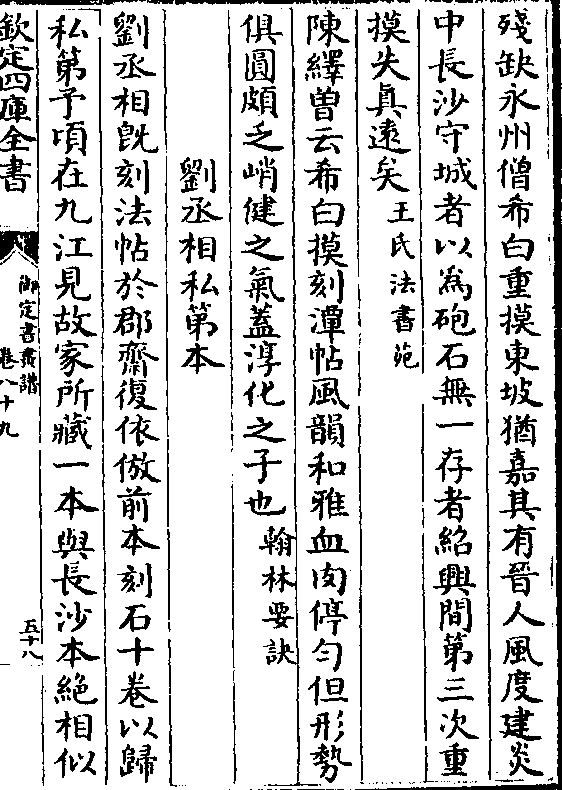 殘缺永州僧希白重摸東坡猶嘉其有晉人風度建炎
中長沙守城者以為砲石無一存者紹興間第三次重
摸失真遠矣王氏法書苑
陳繹曽云希白摸刻潭帖風韻和雅血肉停勻但形勢
俱圓頗乏峭健之氣蓋淳化之子也翰林要訣
劉丞相私第本
劉丞相旣刻法帖於郡齋復依倣前本刻石十卷以歸
私第予頃在九江見故家所藏一本與長沙本絶相似
欽定四庫全書
御定書畫譜
卷八十九
五十八